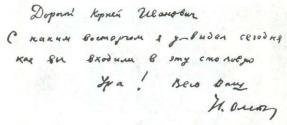 Дорогой Корней Иванович
С каким восторгом я увидел сегодня
как вы входили в эту столовую
Ура! Весь Ваш